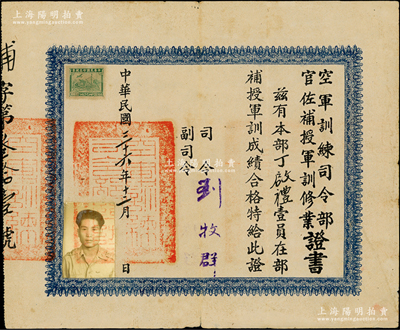 上海陽明拍賣
www.yangmingauction.com
空軍訓練司令部
官佐補授軍訓修業證書
茲有本部丁啟禮壹員在部
補授軍訓成績合格特給此證
司令 劉牧群
副司令
中華民國三十六年十二月 日
補字第叁拾壹號
上海陽明拍賣
www.yangmingauction.com